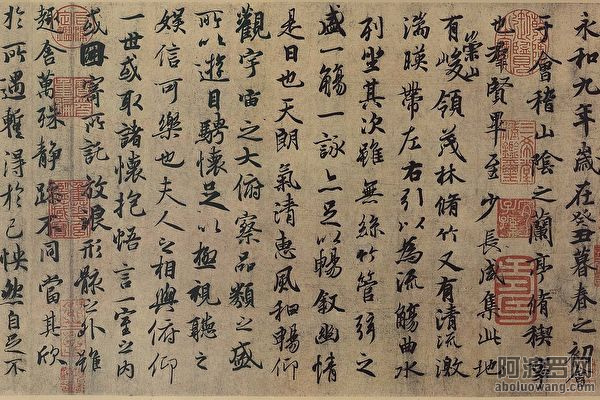 永和九年歲在癸丑暮春之初會
于會稽山陰之蘭亭脩稧事
也羣賢畢至少長咸集此地
有崇山峻領茂林脩竹又有清流激
湍暎帶左右引以為流觴曲水
列坐其次雖無絲竹管弦之
盛一觴一詠亦足以暢敘幽情
是日也天朗氣清惠風和暢仰
觀宇宙之大俯察品類之盛
所以遊目騁懷足以極視聽之
娛信可樂也夫人之相與俯仰
一世或取諸懷抱悟言一室之內
或因寄所託放浪形骸之外雖
趣舍萬殊靜躁不同當其欣
於所遇暫得於己怏然自足不
阿波罗网
aboluowang.com